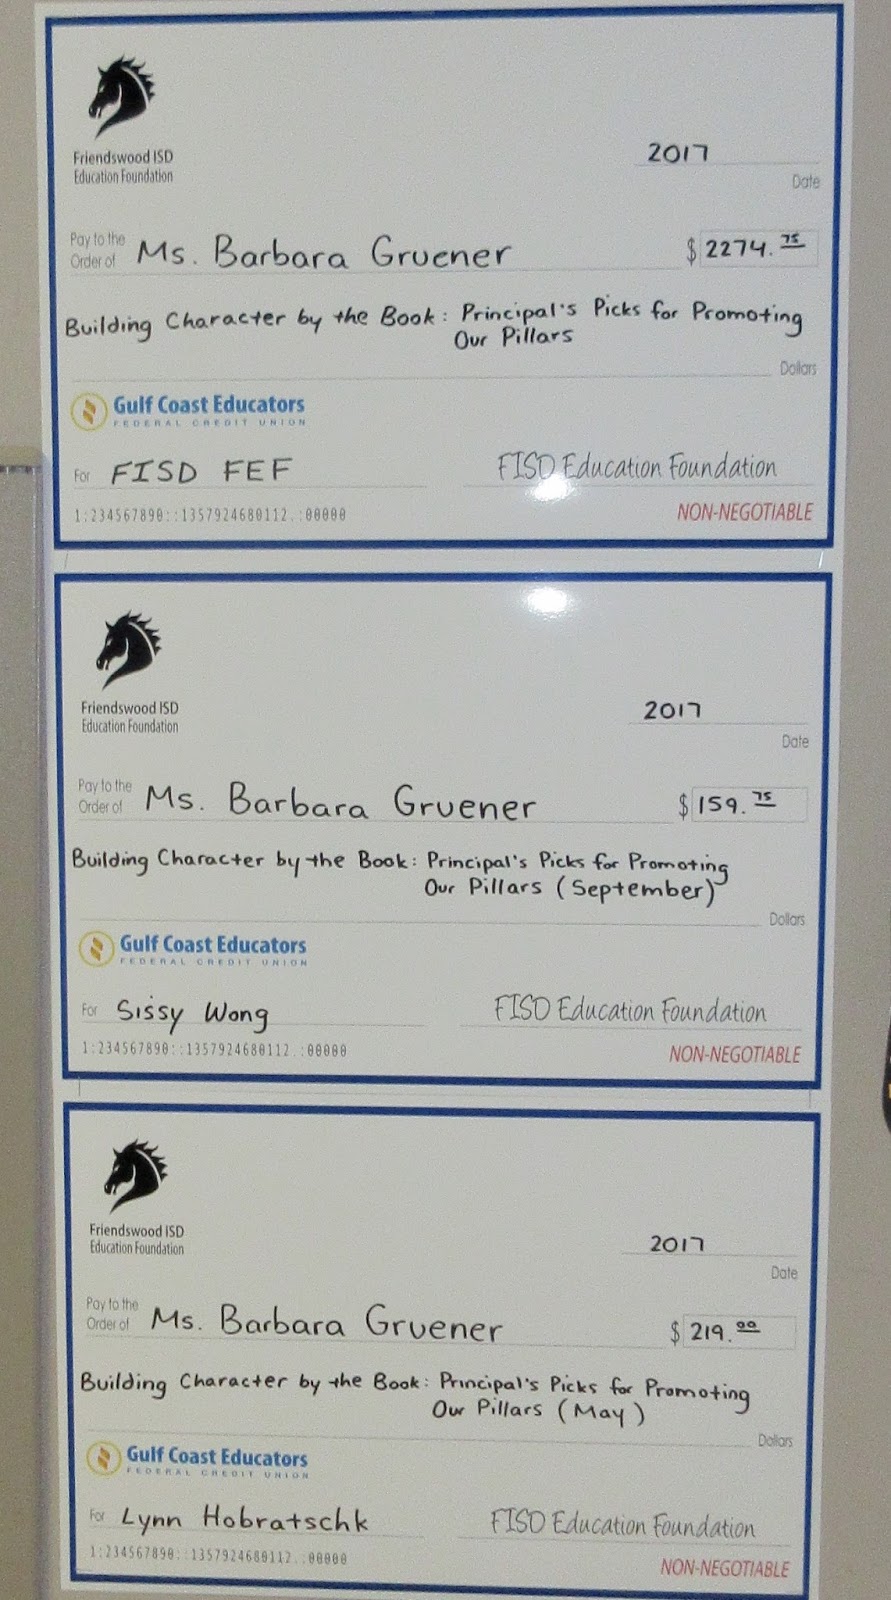 Friendswood ISD
Education Foundation
2017
Date
Pay to the
Order of Ms. Barbara Gruener $ 2274.75
Building Character by the Book: Principal's Picks for Promoting
Our Pillars
Dollars
Gulf Coast Educators
FEDERAL CREDIT UNION
For FISD FEF FISD Education Foundation
1:234567890::1357924680112.:00000 NON-NEGOTIABLE
Friendswood ISD
Education Foundation
2017
Date
Pay to the
Order of Ms. Barbara Gruener $ 159.75
Building Character by the Book: Principal's Picks for Promoting
Our Pillars (September)
Dollars
Gulf Coast Educators
FEDERAL CREDIT UNION
For Sissy Wong FISD Education Foundation
1:234567890::1357924680112.:00000 NON-NEGOTIABLE
Friendswood ISD
Education Foundation
2017
Date
Pay to the
Order of Ms. Barbara Gruener $ 219.00
Building Character by the Book: Principal's Picks for Promoting
Our Pillars (May)
Dollars
Gulf Coast Educators
FEDERAL CREDIT UNION
For Lynn Hobratschk FISD Education Foundation
1:234567890::1357924680112.:00000 NON-NEGOTIABLE